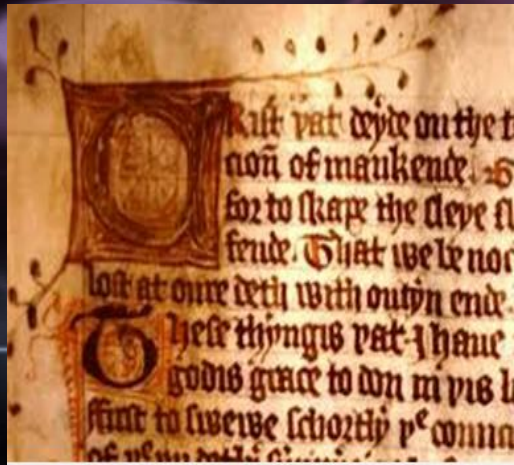 CRist þat deyde on the t
cion of mankende.
for to skape the sleye
fende. That we be
lost at oure deth with outyn ende.
These thyngis þat I haue
godis grace to don in þis
ffirst to schortly þe
of